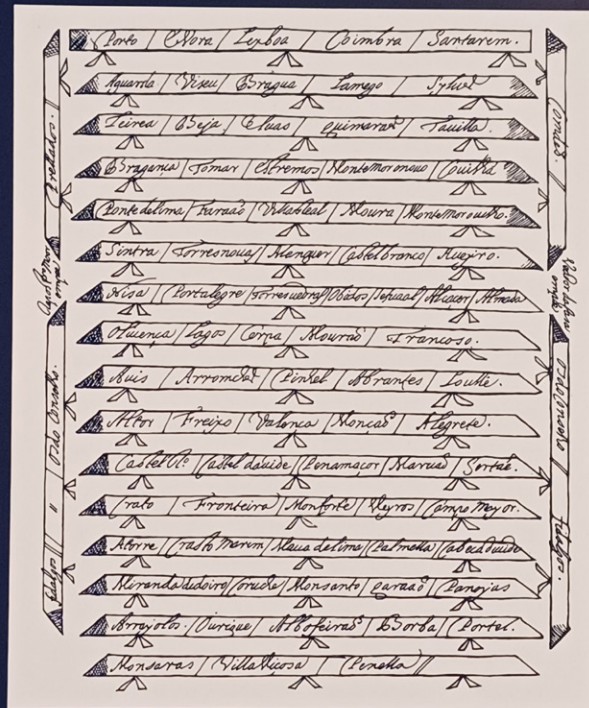 Porto / Evora / Lixboa / Coimbra / Santarem.
Aguarda / Viseu / Bragua / Lamego / Sylves
Teirea / Beja / Eluas / guimaraẽs / Tauilla.
Bragança / Tomar / estremos / Montemoronouo / Couilhã
Ponte delima / Faraaõ / VillaReal / Moura / Montemorouelho.
Sintra / Torresnouas / Alenquer / Castelbranco / Aueiro.
Nisa / Portalegre / Torresuedras / Obidos / Setuual / Alcacer / Almada
Oliuença / Lagos / Cerpa / Mouraõ / Francoso.
Auis / Arronches / Pinhel / Abrantes / Loulle.
Alter / Freixo / Valença / Monçaõ / Alegrete.
Castel / Castel dauide / Penamaçor / Maruaõ / Sertãe.
Crato / Fronteira / Monforte / Veyros / Campo Mayor.
Atorre / Crasto Marem / Viana delima / Palmella / Cabeca deuide
Miranda dodoiro / Coruche / Monsanto / garuaaõ / Panojas
Arrayolos. / Ourique / Albofeira / Borba / Portel.
Monsaras / Villa Viçosa / Penella //
Prellados. //
fidalgos // " // Osdo Conselho.
Condes. //
Osdo Conselho // fidalgos.